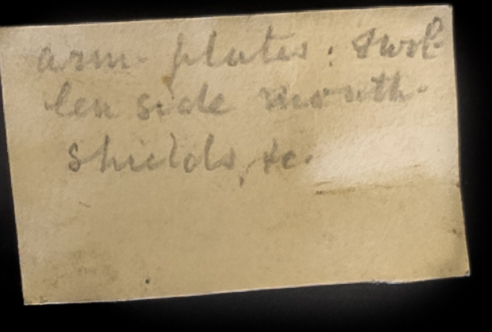 arm-plates: swol-
len side mouth-
shields, &c.